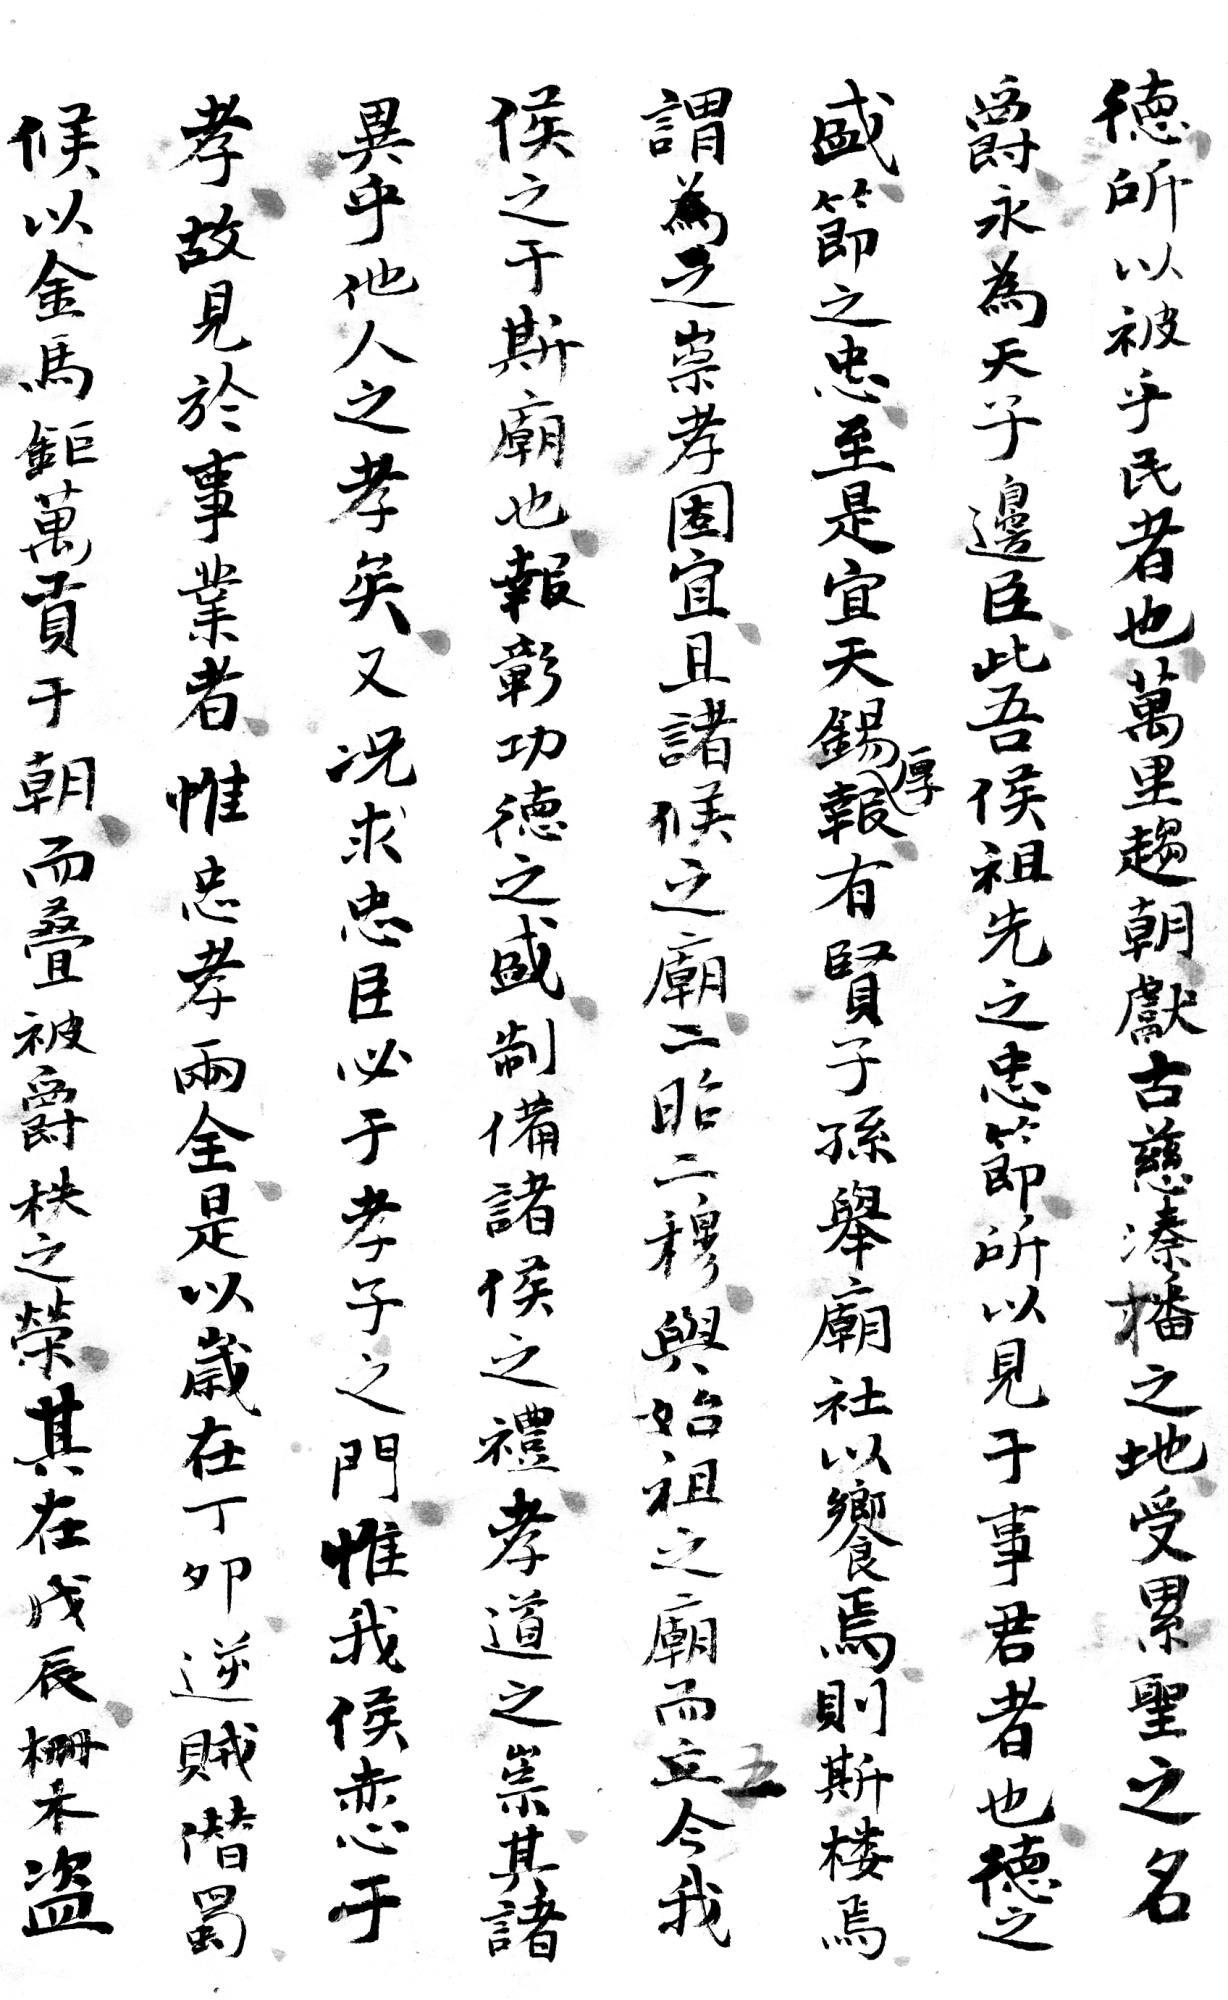 德所以被乎民者也萬里趨朝獻古慈溱播之地受累聖之名
爵永為天子邊臣此吾侯祖先之忠節所以見于事君者也德之
盛節之忠至是宜天錫厚報有賢子孫舉廟社以饗焉則斯楼焉
謂為之崇孝固宜且諸候之廟二昭二穆與始祖之廟而五今我
侯之于斯廟也報彰功德之盛制備諸侯之禮孝道之崇其諸
異乎他人之孝矣又况求忠臣必于孝子之門惟我侯恋于
孝故見於事業者惟忠孝兩全是以歲在丁卯逆賊僭蜀
候以金馬鉅萬貢于朝而疊被爵秩之榮其在戊辰柵木盜